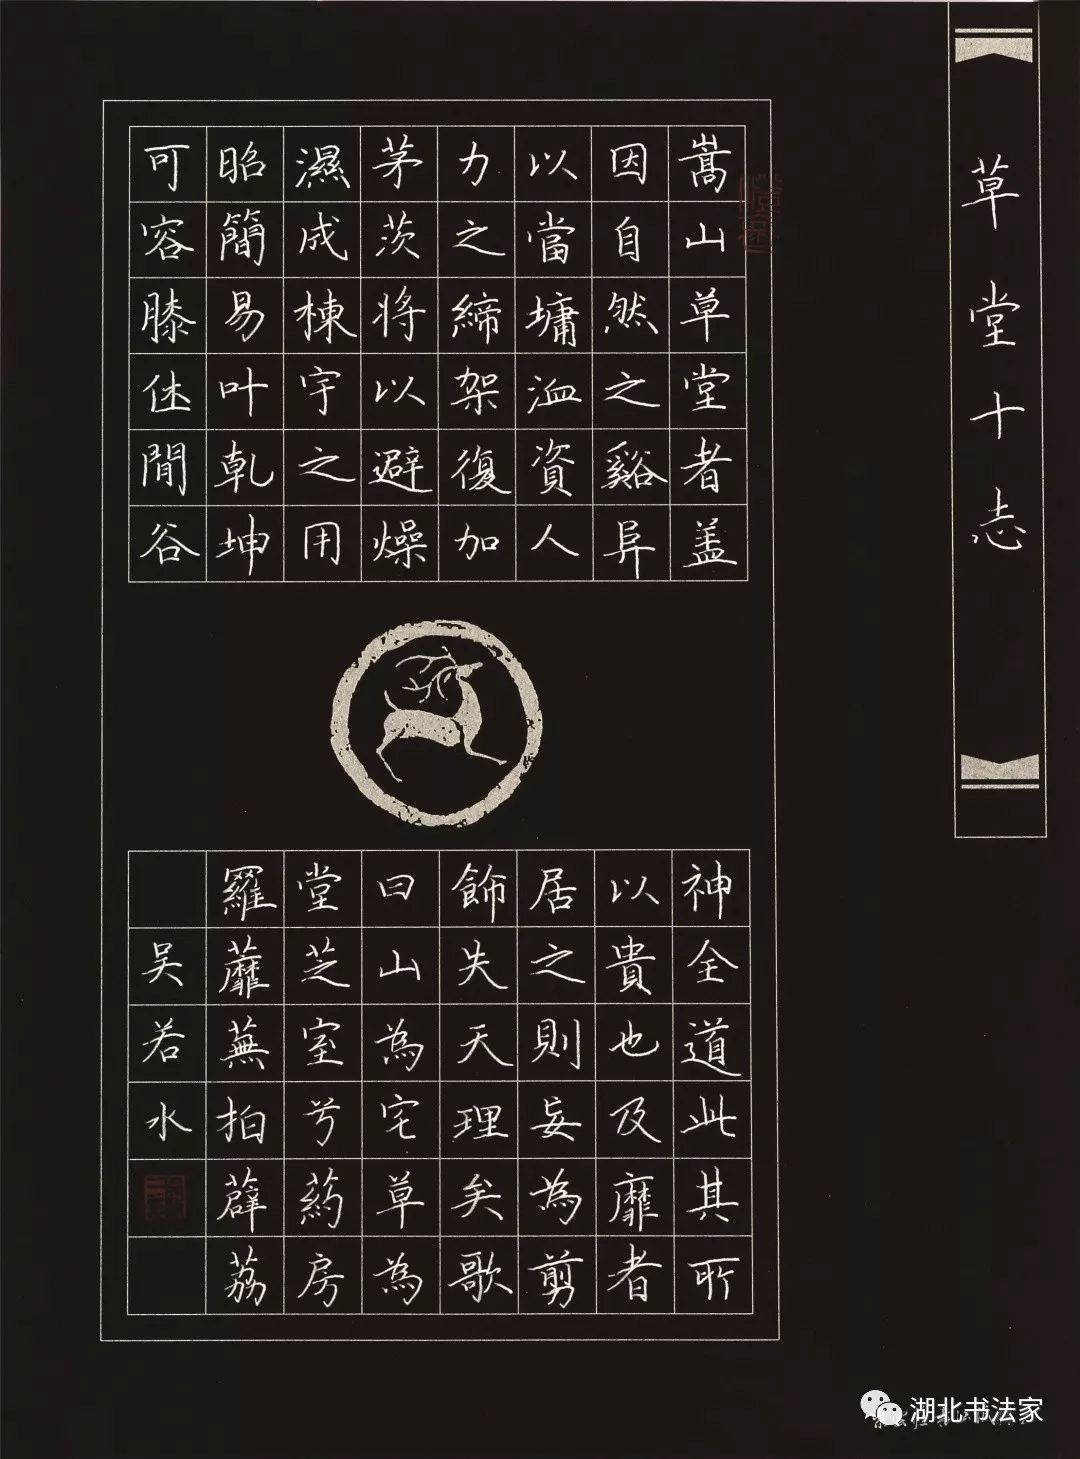 草堂十志
嵩山草堂者盖
因自然之谿异
以當墉洫資人
力之締架復加
茅茨将以避燥
濕成棟宇之用
昭簡易叶乹坤
可容膝休閒谷
神全道此其所
以貴也及靡者
居之則妄為剪
飾失天理矣歌
曰山為宅草為
堂芝室兮药房
羅蘼蕪拍薜荔
吴若水
湖北书法家